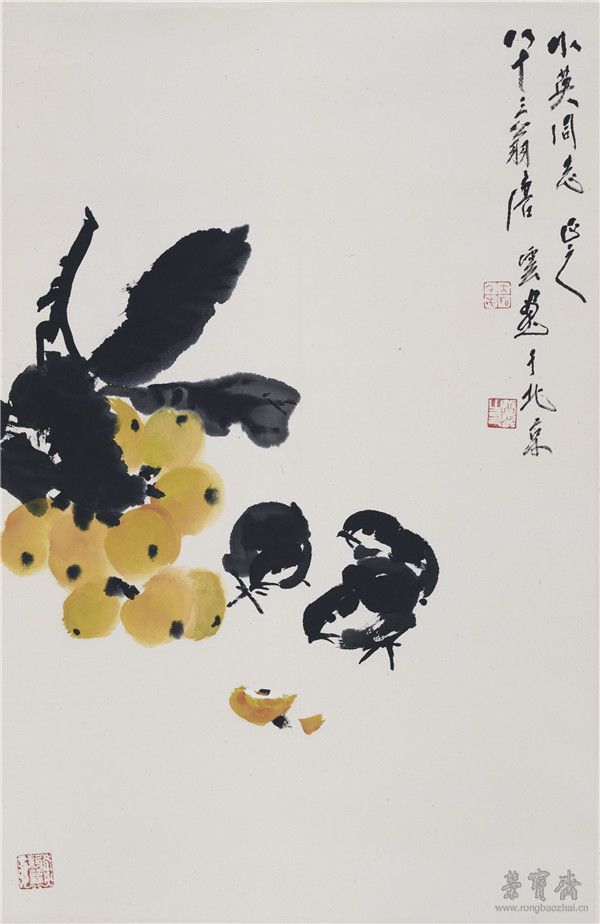 英同志正之
八十三翁唐雲畫于北京
榮寶齋
www.rongbaozhai.cn